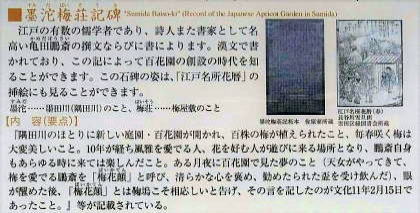 すみだばいそうき ひ
墨沱梅荘記碑 "Sumida Baiso-ki" (Record of the Japanese Apricot Garden in Sumida)
江戸の有数の儒学者であり、詩人また書家として名
かめ だ ぼうさい
高い亀田鵬斎の撰文ならびに書によります。漢文で書
かれており、この記によって百花園の創設の時代を知
ることができます。この石碑の姿は、「江戸名所花暦」の
挿絵にも見ることができます。
すみだ
墨沱……墨田川(隅田川)のこと、梅荘……梅屋敷のこと
ばいそう
墨沱梅荘記拓本
江戸名所花暦(春)
長谷川雪旦画
【内 容(要点)】
「隅田川のほとりに新しい庭園・百花園が開かれ、百株の梅が植えられたこと、毎春咲く梅は
大変美しいこと。10年が経ち風雅を愛でる人、花を好む人が遊びに来る場所となり、鵬斎自身
もあらゆる時に来ては楽しんだこと。ある月夜に百花園で見た夢のこと(天女がやってきて、
梅を愛でる鵬斎を「梅花顛」と呼び、清らかな心を褒め、勧められた盃を受け飲んだ)、眼
が醒めた後、「梅花顛」とは鞠塢こそ相応しいと告げ、その言を記したのが文化11年2月15日で
あったこと。』等が記載されている。